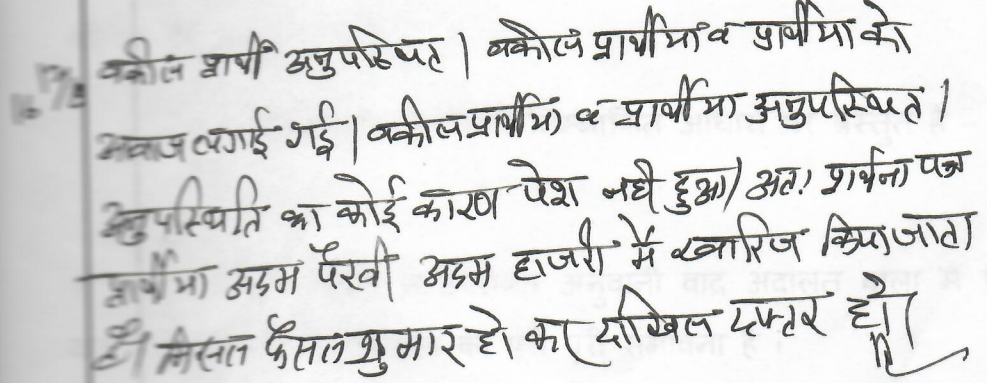 वकील प्रार्थी अनुपस्थित। वकील प्रार्थीया व प्रार्थीया को
आवाज लगाई गई। वकील प्रार्थीया व प्रार्थीया अनुपस्थित।
अनुपस्थिति का कोई कारण पेश नही हुआ। अतः प्रार्थना पत्र
प्रार्थीया अदम पैरवी अदम हाजरी में खारिज किया जाता
है। मिसल फैसल शुमार हो कर दाखिल दफ्तर हो।